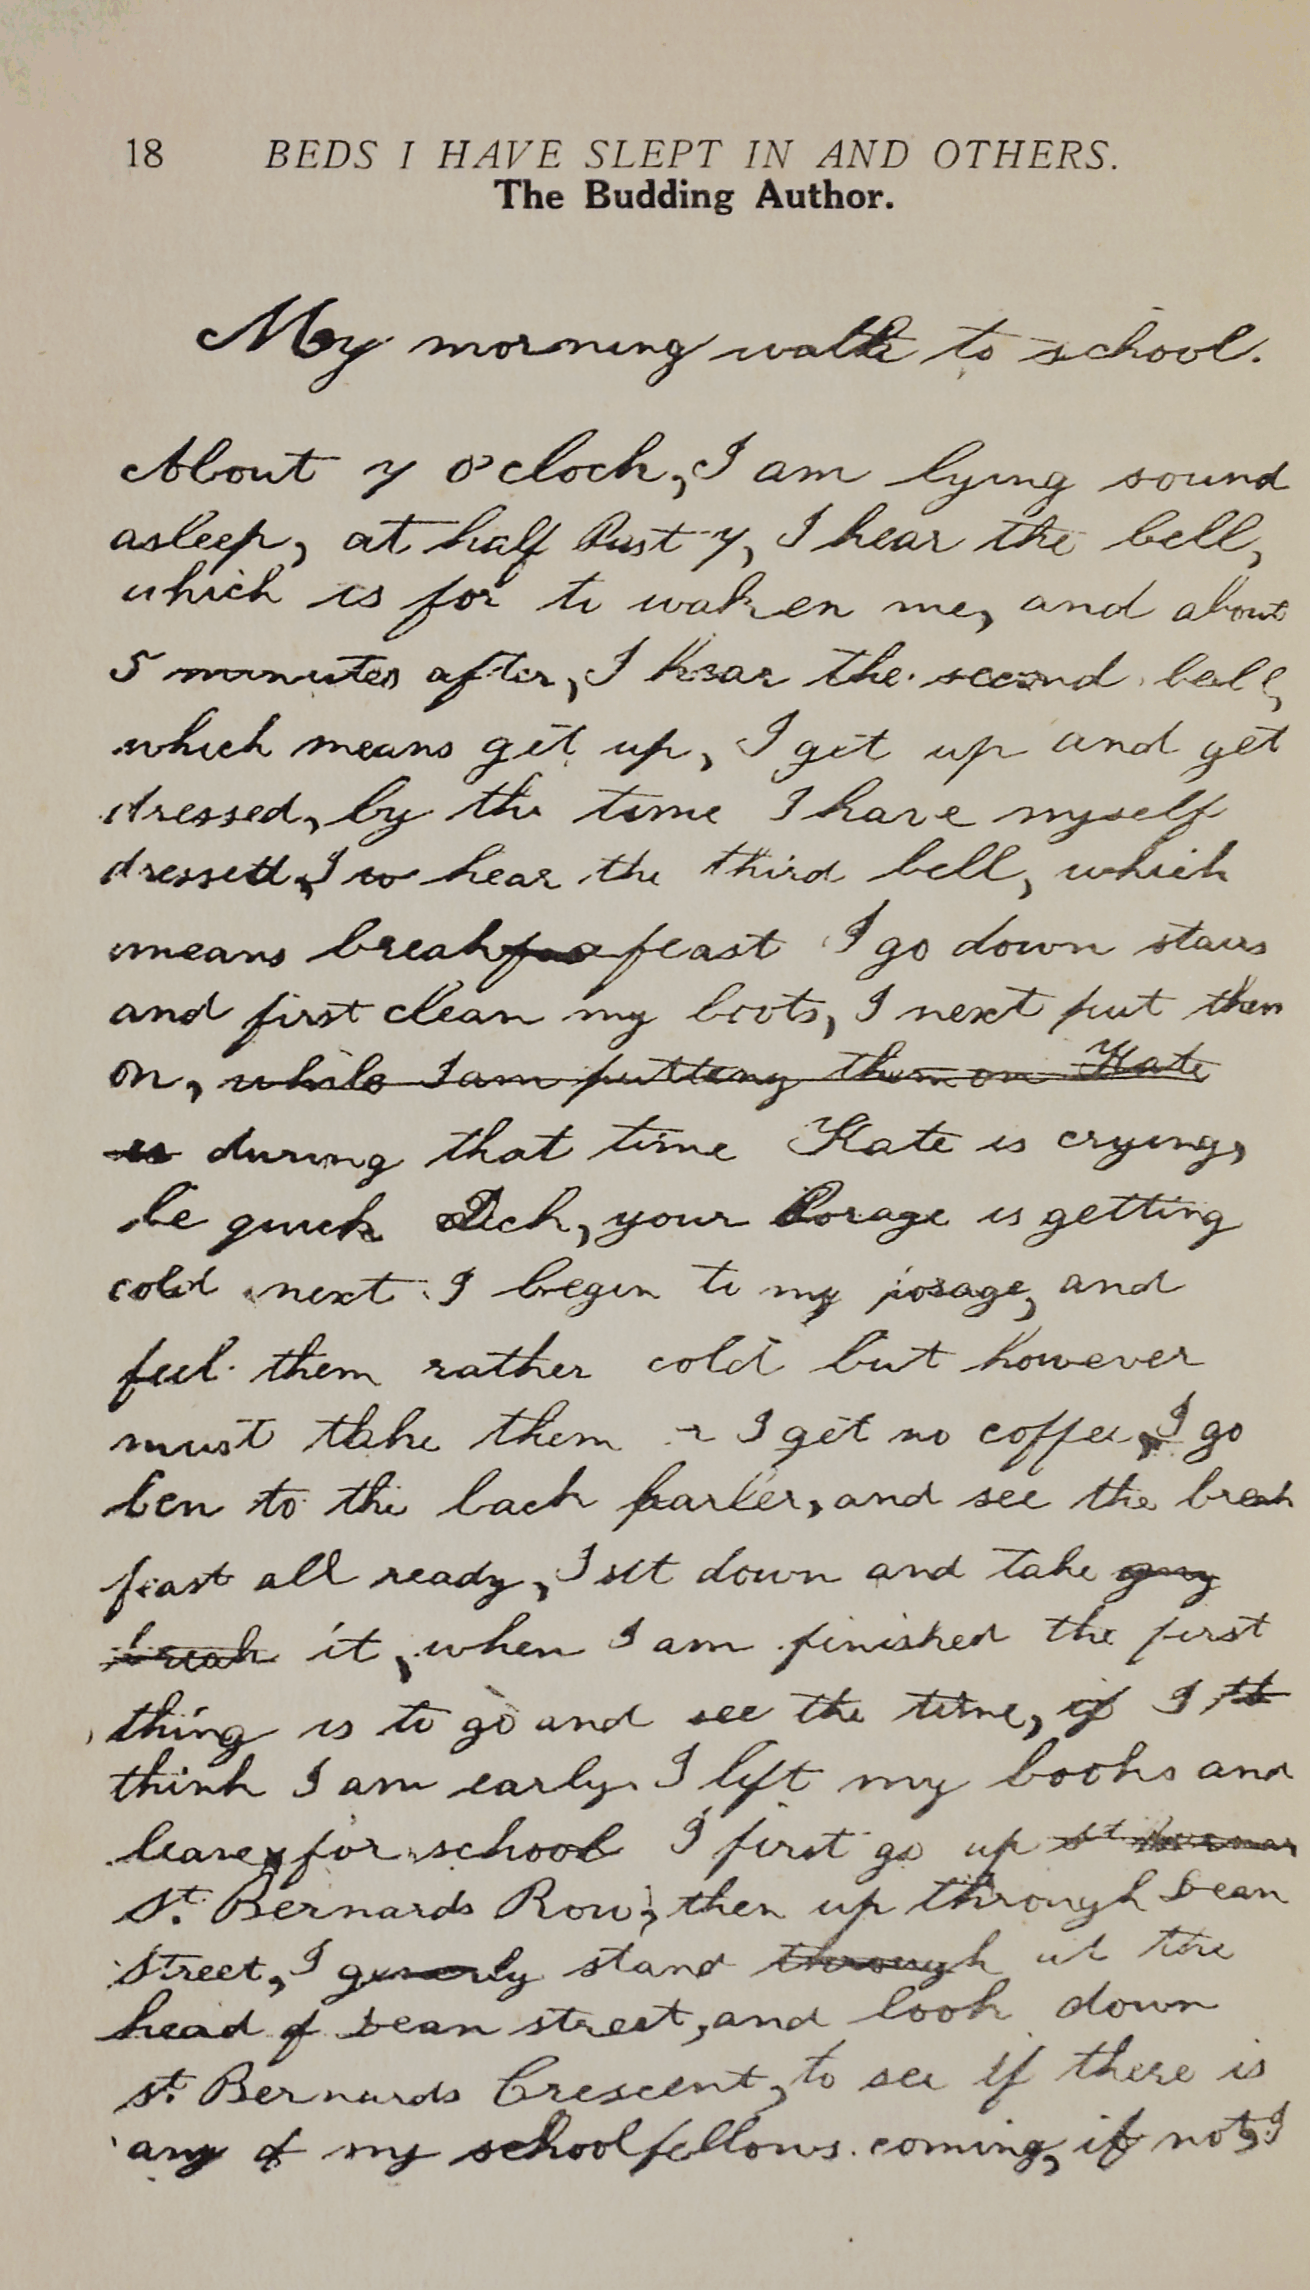 18 BEDS I HAVE SLEPT IN AND OTHERS.
The Budding Author.
My morning walk to school.
About 7 o'clock, I am lying sound
asleep, at half Past 7, I hear the bell,
which is for to waken me, and about
5 minutes after, I hear the second bell,
which means get up, I get up and get
dressed, by the time I have myself
dressed, I hear the third bell, which
means breakfeast I go down stairs
and first clean my boots, I next put them
on, while I am putting them on Kate
is during that time Kate is crying,
be quick Dick, your Porage is getting
cold next I begin to my porage, and
feel them rather cold but however
must take them I get no coffee, I go
ben to the back parler, and see the break
feast all ready, I sit down and take my
break it, when I am finished the first
thing is to go and see the time, if I th
think I am early I lift my books and
leave for school I first go up St Bernar
St. Bernards Row, then up through Dean
street, I generly stand through at the
head of Dean street, and look down
St. Bernards Crescent, to see if there is
any of my schoolfellows coming, if not, I